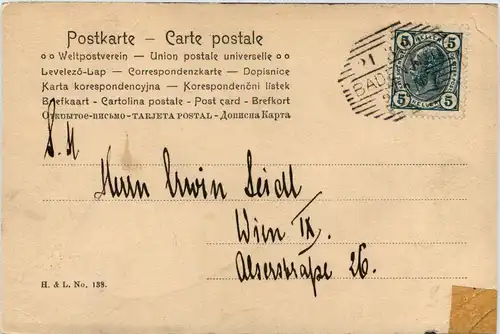 Postkarte – Carte postale
Weltpostverein – Union postale universelle
Levelező-Lap – Correspondenzkarte – Dopisnice
Karta korespondencyjna – Korespondenční lístek
Briefkaart – Cartolina postale – Post card – Brefkort
Открытое-письмо – TARJETA POSTAL – Дописна Карта
5 5
21
BAD
5 5
S. H
Herrn Erwin Seidl
Wien IX.
Alserstraße 26.
H. & L. No. 138.